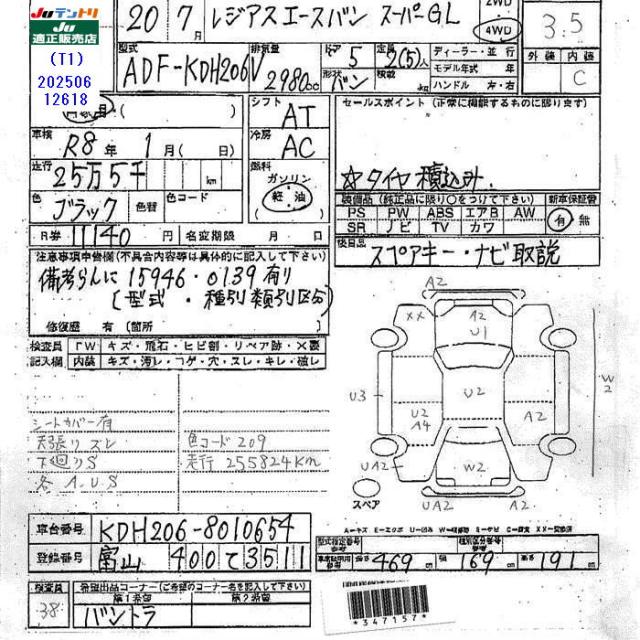 JUテントリ
JU
適正販売店
(T1)
202506
12618
20年 7月 レジアスエースバン スーパーGL 2WD 4WD 3.5
外装 内装 C
型式 ADF-KDH206V 排気量 2980cc ドア 5 形状 バン 定員 2(5)人 積載 kg
ディーラー・並行
モデル年式 年
ハンドル 左・右
車検 R8年 1月(日)
シフト AT
冷房 AC
セールスポイント (正常に機能するものに限ります)
☆タイヤ積込み
走行 25万5千 km
燃料 ガソリン 軽油
色 ブラック 色替 色コード
装備品 (純正品に限り○をつけて下さい) 新車保証書
PS PW ABS エアB AW 有 無
SR ナビ TV カワ
R券 11140円 名変期限 月 日
後日品 スペアキー・ナビ取説
注意事項申告欄(不具合内容等は具体的に記入して下さい)
備考らんに 15946・0139有り
(型式・種別類別区分)
修復歴 有 (箇所
検査員 FW キズ・飛石・ヒビ割・リペア跡・×要
記入欄 内装 キズ・汚レ・コゲ・穴・スレ・キレ・破レ
シートカバー有
天張リズレ
下廻りS
各A.U.S
色コード 209
走行 255824Km
A2
XX A2
U1
U3 U2 W2
U2
A4 A2
UA2 W2
スペア UA2 A2
車台番号 KDH206-8010654
登録番号 富山 400 て 3511
型式指定番号 類別区分番号
469 169 191
検査員 38
希望出品コーナー (ご希望のコーナー名を記入して下さい)
第1希望 第2希望
バントラ
*347157*